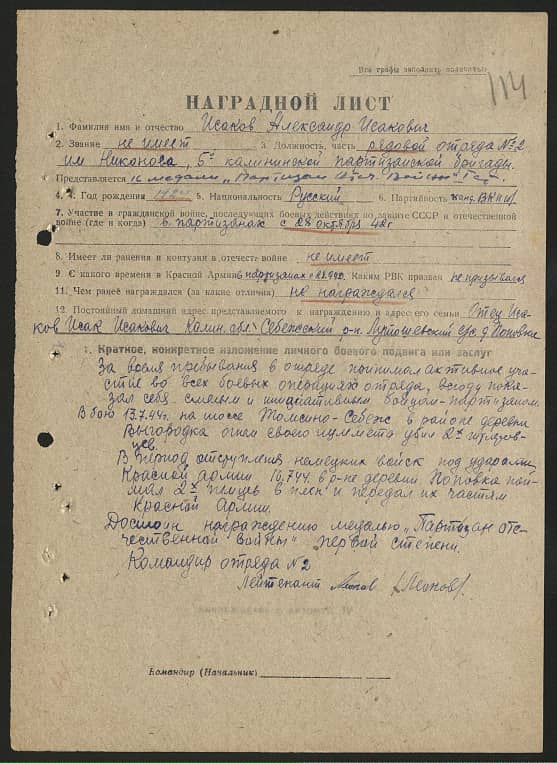 Все графы заполнять полностью
114
НАГРАДНОЙ ЛИСТ
1. Фамилия имя и отчество Исаков Александр Исакович
2. Звание не имеет 3. Должность, часть рядовой отряда № 2
им Никоноса, 5й калининской партизанской бригады.
Представляется к медали „Партизан Отеч. Войны"
4. Год рождения 5. Национальность Русский 6. Партийность канд. ВКП(б)
7. Участие в гражданской войне, последующих боевых действиях по защите СССР и отечественной
войне (где и когда) в партизанах с 28 октября 42 г
8. Имеет ли ранения и контузии в отечеств войне не имеет
9. С какого времени в Красной Армии в партизанах с Каким РВК призван не призывался
11. Чем ранее награждался (за какие отличия) не награждался
12. Постоянный домашний адрес представляемого к награждению и адрес его семьи Отец Иса-
ков Исак Исакович Калин. обл. Себежский р-н с/с д. Поповка
1. Краткое, конкретное изложение личного боевого подвига или заслуг
За время пребывания в отряде принимал активное уча-
стие во всех боевых операциях отряда, всюду пока-
зал себя смелым и инициативным бойцом-партизаном.
В бою 13.7.44г. на шоссе Томсино-Себеж в районе деревни
Выгородка огнем своего пулемета убил 2х гитлеров-
цев.
В период отступления немецких войск под ударами
Красной армии 16.7.44 в р-не деревни Поповка пой-
мал 2х немцев в плен и передал их частям
Красной Армии.
Достоин награждению медалью „Партизан оте-
чественной войны" первой степени.
Командир отряда № 2
Лейтенант Леонов (Леонов).
Командир (Начальник)